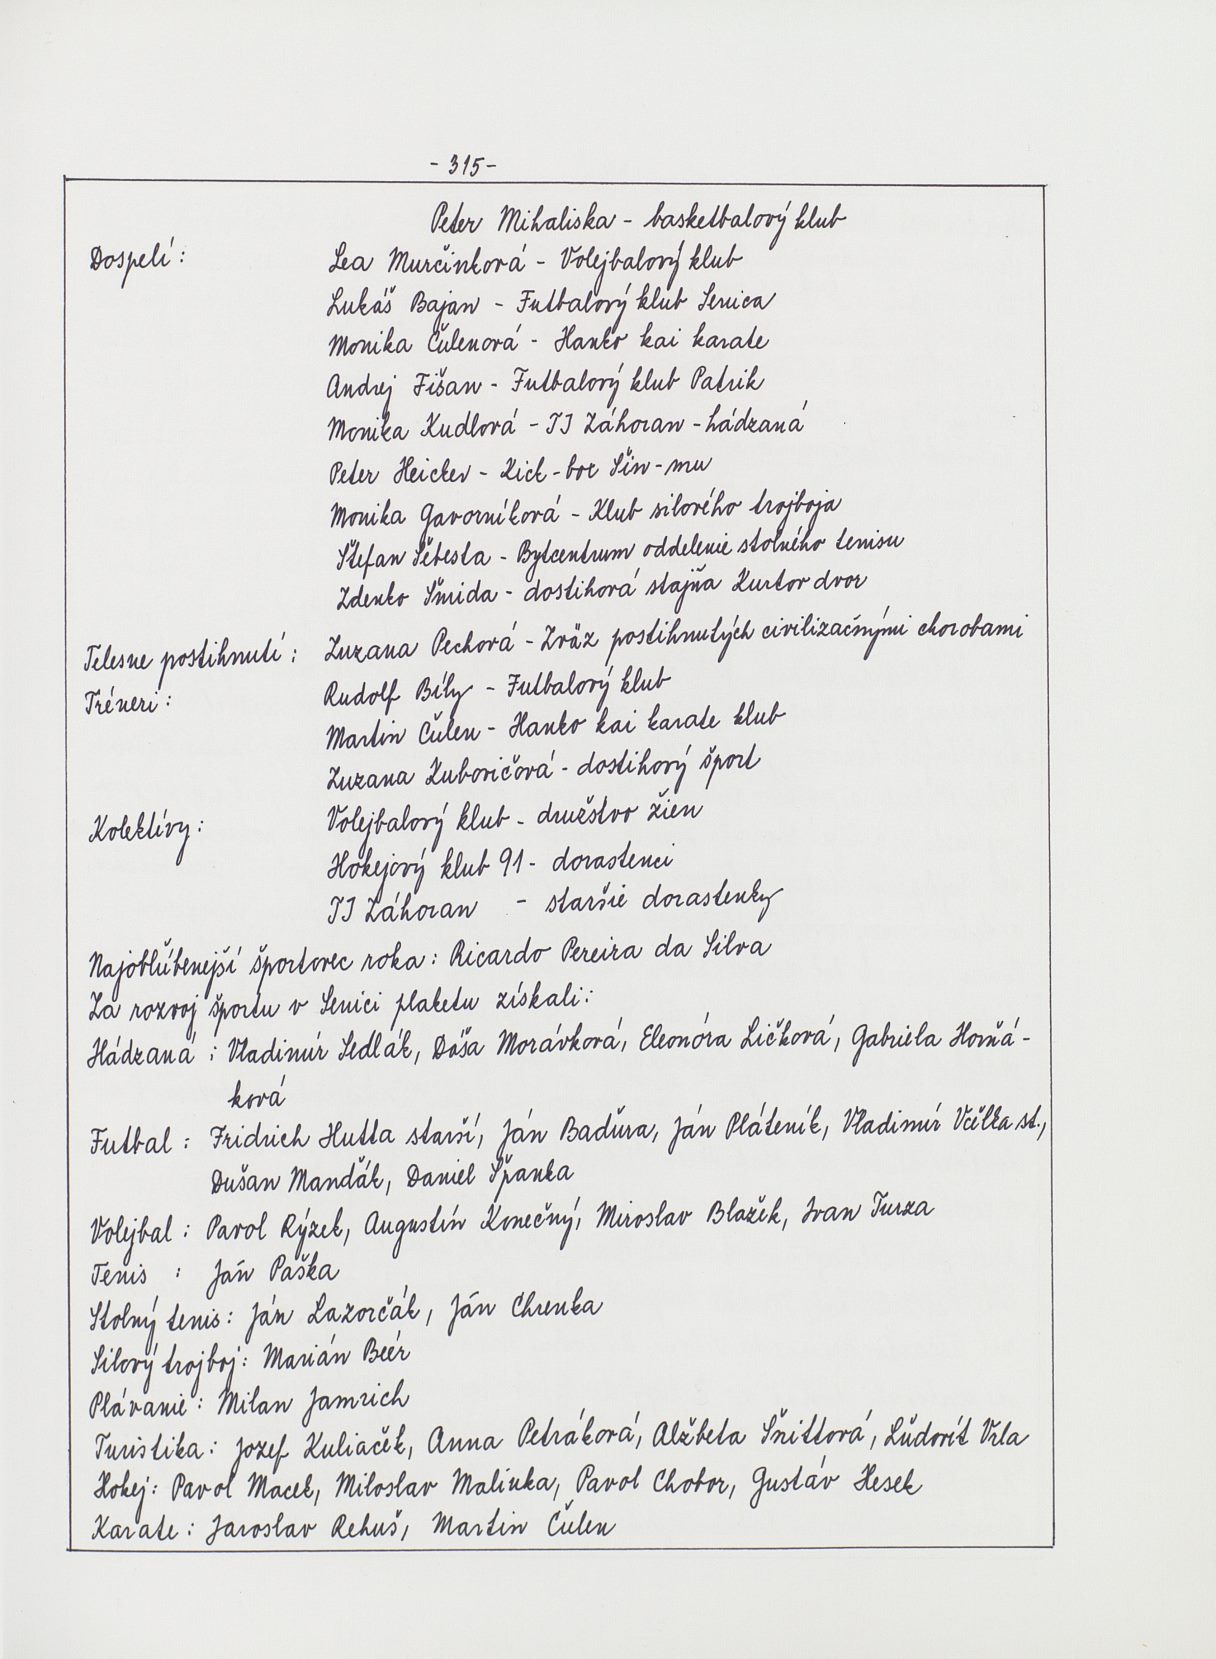 - 315 -
Peter Mihaliska - basketbalový klub
Dospelí: Lea Murčinková - Volejbalový klub
Lukáš Bajan - Futbalový klub Senica
Monika Čulenová - Hanko kai karate
Andrej Fišan - Futbalový klub Patrik
Monika Kudlová - TJ Záhoran - hádzaná
Peter Heicker - Kick - box Šin - mu
Monika Gavorníková - Klub silového trojboja
Štefan Šebesta - Bytcentrum oddelenie stolného tenisu
Zdenko Šmida - dostihová stajňa Kurtov dvor
Telesne postihnutí: Zuzana Pechová - Zväz postihnutých civilizačnými chorobami
Tréneri: Rudolf Bíly - Futbalový klub
Martin Čulen - Hanko kai karate klub
Zuzana Kubovičová - dostihový šport
Kolektívy: Volejbalový klub - družstvo žien
Hokejový klub 91 - dorastenci
TJ Záhoran - staršie dorastenky
Najobľúbenejší športovec roka: Ricardo Pereira da Silva
Za rozvoj športu v Senici plaketu získali:
Hádzaná : Vladimír Sedlák, Dáša Morávková, Eleonóra Ličková, Gabriela Horňá-
ková
Futbal : Fridrich Hutta starší, Ján Baďura, Ján Pláteník, Vladimír Včelka st.,
Dušan Manďák, Daniel Španka
Volejbal : Pavol Rýzek, Augustín Konečný, Miroslav Blažek, Ivan Turza
Tenis : Ján Paška
Stolný tenis: Ján Lazorčák, Ján Chrenka
Silový trojboj: Marián Beér
Plávanie: Milan Jamrich
Turistika: Jozef Kuliaček, Anna Petráková, Alžbeta Šnittová, Ľudovít Vrla
Hokej: Pavol Macek, Miloslav Malinka, Pavol Chobor, Gustáv Hesek
Karate: Jaroslav Rehuš, Martin Čulen